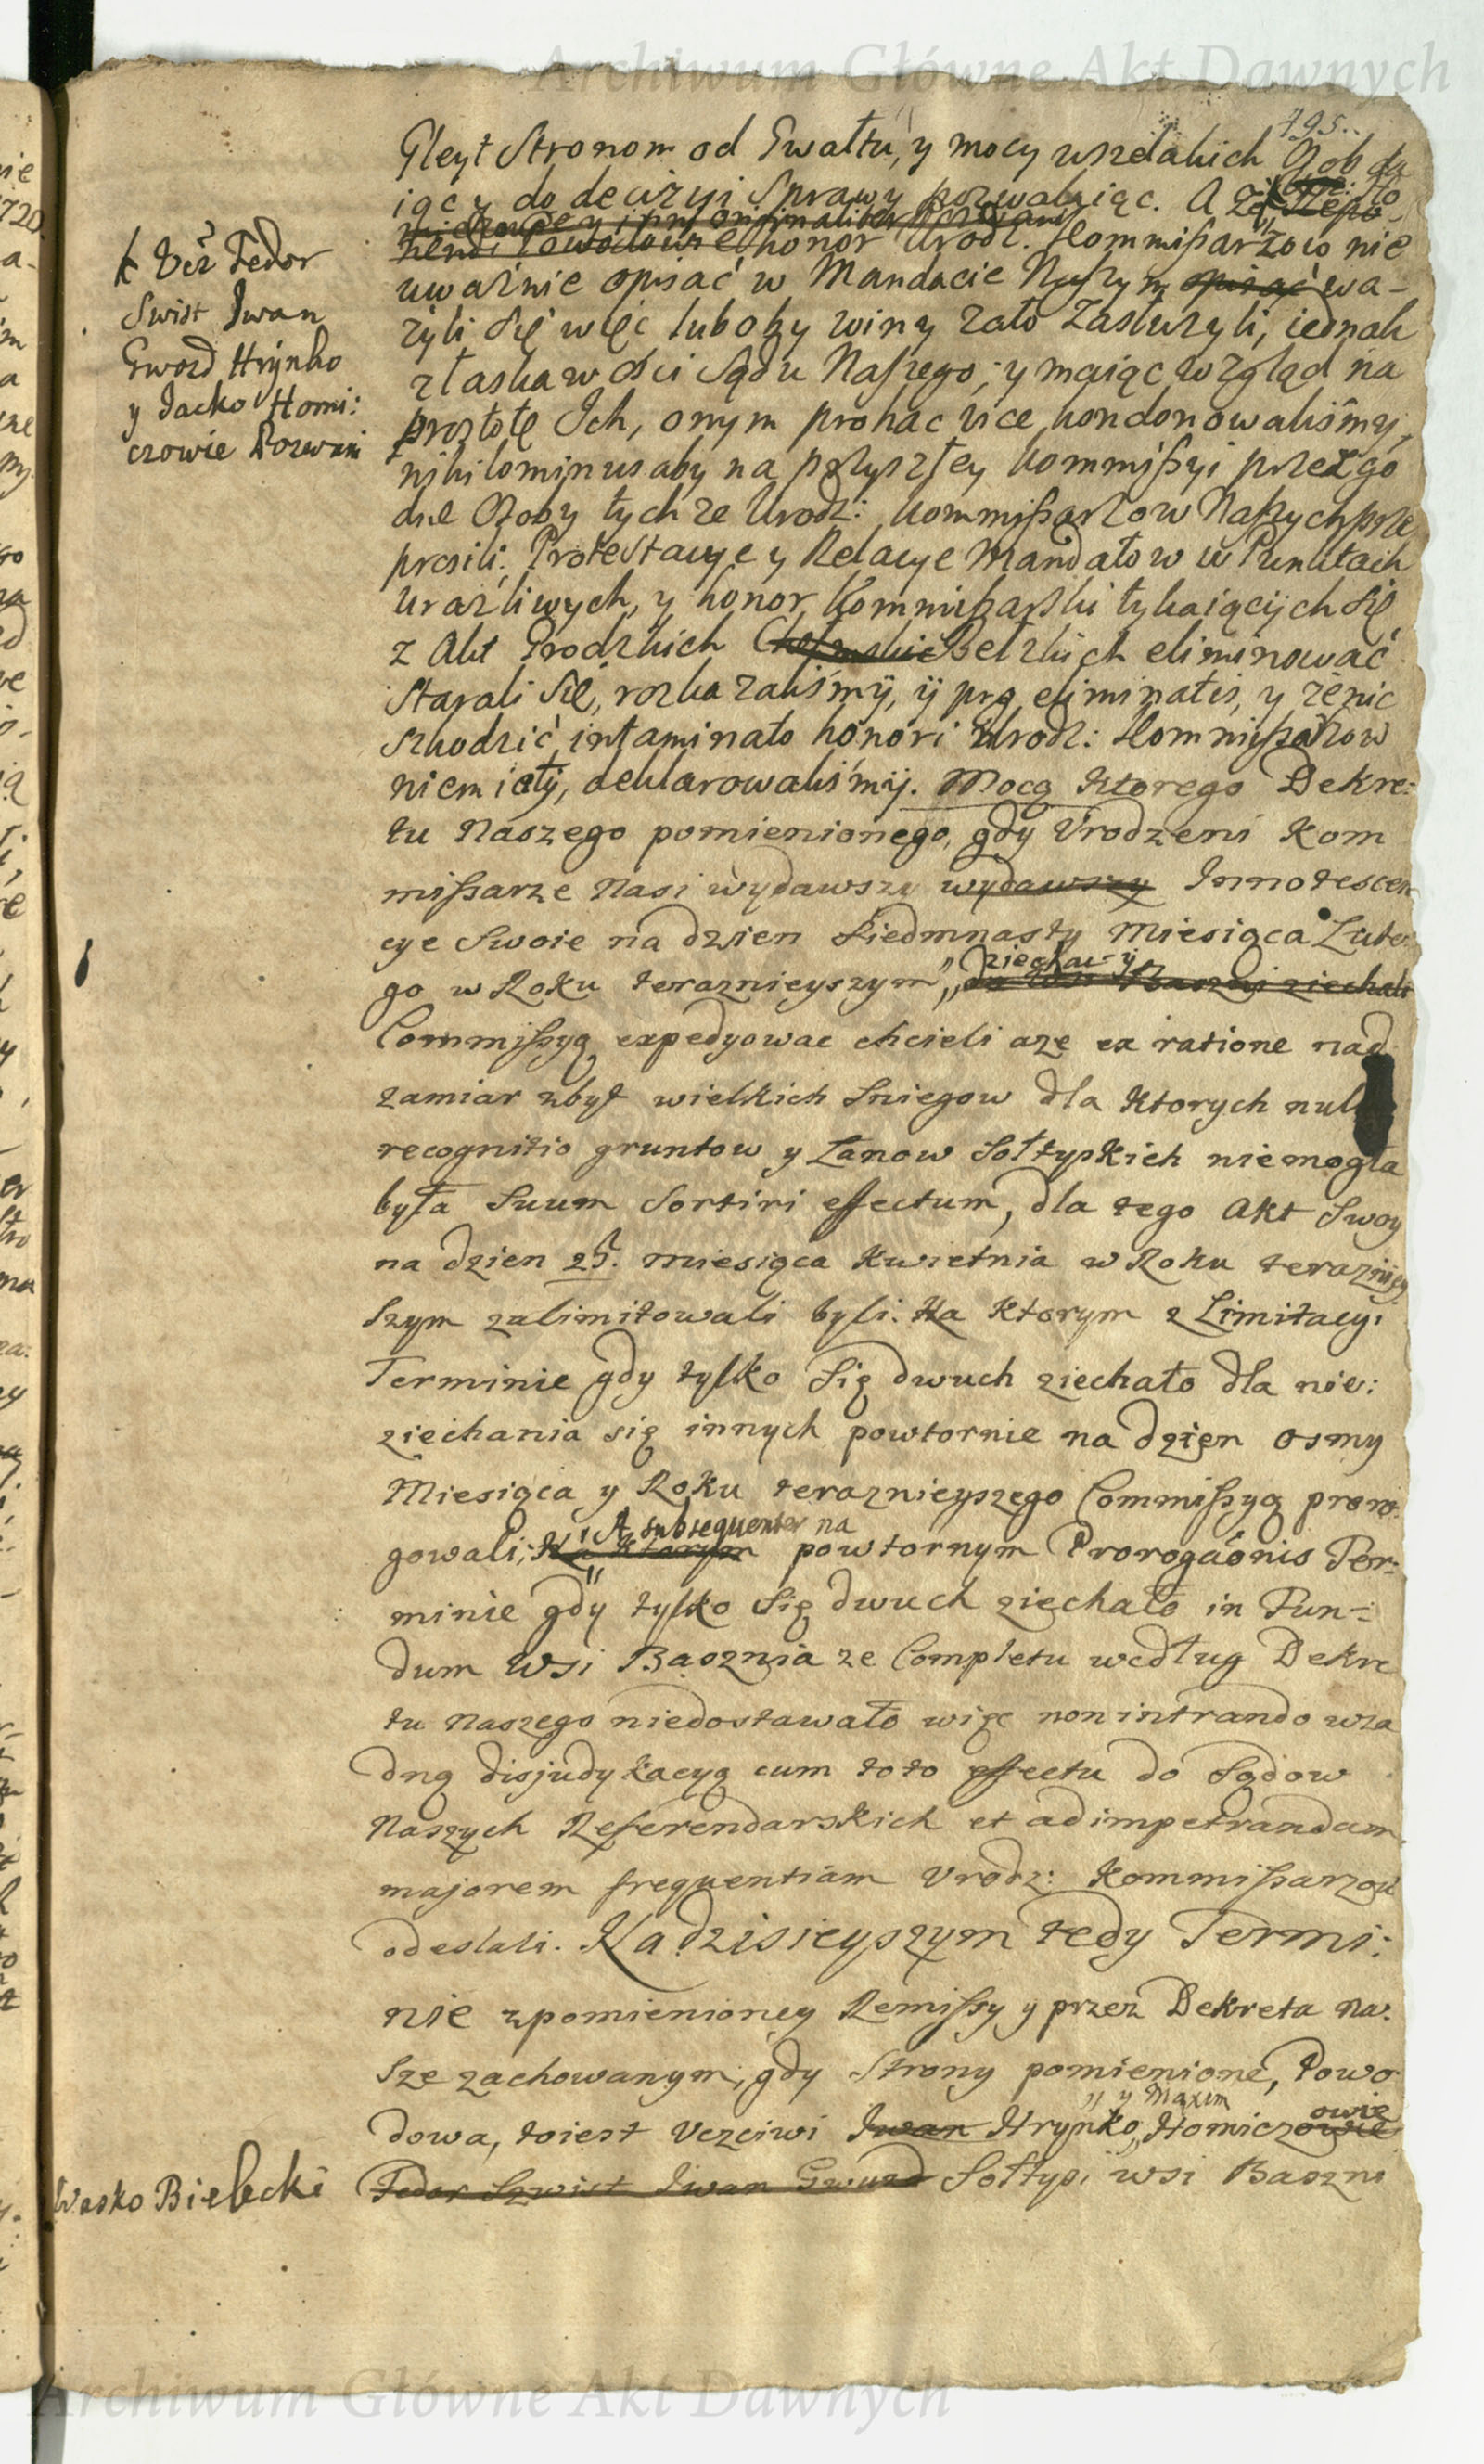 Archiwum Główne Akt Dawnych
495.
Gleyt Stronom od Gwałtu, y mocy wszelakich Osob da
iąc y do decizyi Sprawy pozwalaiąc. A że
honor Urodz. Kommißarzow nie
uwaźnie opisać w Mandacie Naszym opisać wa-
żyli Się więc luboby winy zato Zasłużyli, iednak
złaskawości Sądu Naszego, y maiąc wzgląd na
prostotę Ich, onym pro hac vice kondonowaliśmy,
nihilominus aby na przyszłey Kommißyi przez go
dne Osoby tychze Urodz: Kommißarzow Naszych prze
prosili; Protestacye y Relacye Mandatow w Punktach
uraźliwych, y honor Kommißarski tykaiących Się
z Akt Grodzkich Chełmskich Bełzkich eliminować
Starali Się, rozkazaliśmÿ, ÿ pro eliminatis, y żenic
szkodzić intaminato honori Urodz: Kommißarzow
niemiałÿ, deklarowaliśmÿ. Mocą ktorego Dekre:
tu Naszego pomienionego, gdy Vrodzeni Kom
mißarze Nasi wydawszy wydawszy Innotescen
cye Swoie na dzien Siedmnasty Miesiąca Lute:
ziechawsy
go w Roku teraznieyszym do Wsi Baszni ziechali
Commißyą expedyowac chcieli aze ex ratione nad
zamiar zbyt wielkich Sniegow dla ktorych
recognitio gruntow y Łanow Sołtyskich niemogła
była Suum Sortiri effectum, dla tego Akt Swoy
na dzien miesiąca Kwietnia w Roku terazniey
Szym zalimitowali byli. Na ktorym z Limitacyi
Terminie gdy tylko Się dwuch ziechało dla nie:
ziechania się innych powtornie na dzien osmy
Miesiąca y Roku teraznieyszego Commißyą proro
A subsequenter na
gowali; Na ktorym powtornym Prorogaōnis Ter:
minie gdy tylko Się dwuch ziechało in Fun-:
dum Wsi Basznia ze Completu według Dekre
tu Naszego niedostawało więc non intrando wża
dną disjudykacyą cum toto effectu do Sądow
Naszych Referendarskich et ad impetrandam
majorem frequentiam Vrodz: Kommißarzow
odeslali. Na dzisieyszym tedy Termi:
nie zpomienioney Remißy y przez Dekreta Na:
Sze zachowanym, gdy Strony pomienione, Powo
y Maxim
owie
dowa, toiest Vczciwi Iwan Hrynko, Homiczowie
Fedor Szwist Iwan Gwozd Sołtysi wsi Baszni
Vcź Fedor
Swist Iwan
Gwozd Hrynko
y Jacko Homi:
czowie Pozwani
Wasko Bielecki
Archiwum Główne Akt Dawnych